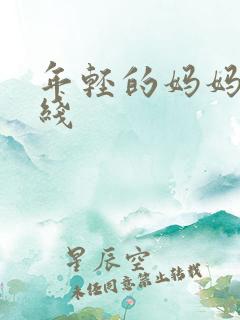 年轻的妈妈
线
星辰空
未经同意禁止转载